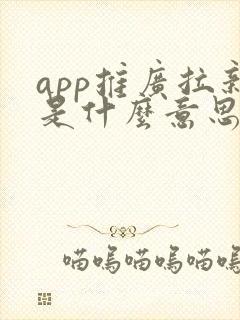 app推廣拉新
是什麼意思
喵嗚喵嗚喵嗚